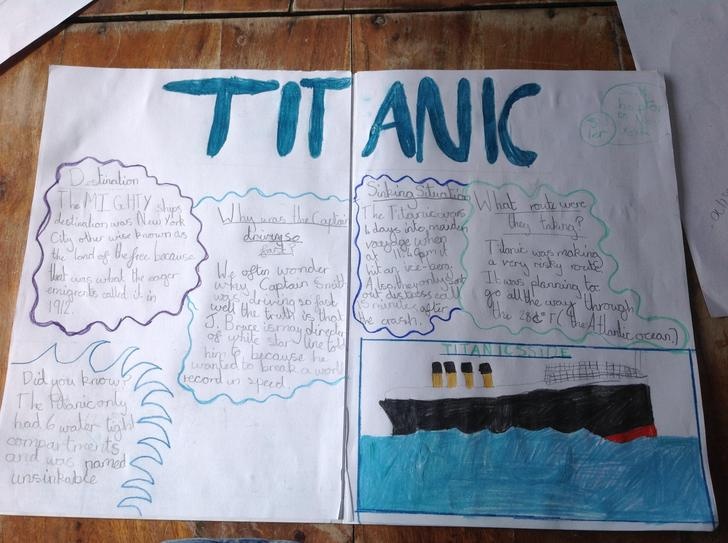 TITANIC
Destination
The MIGHTY ships
destination was New York
City other wise known as
the land of the free because
that was what the eager
emigrents called it in
1912.
Why was the Captain
driving so
fast?
We often wonder
why Captain Smith
was driving so fast
well the truth is that
J. Bruce ismay director
of white star line told
him to because he
wanted to break a world
record in speed.
Did you know?
The Titanic only
had 6 water tight
compartments
and was named
unsinkable
Sinking Situation
The Titanic was
4 days into maiden
voyage when
at 11:40pm it
hit an ice-berg.
Also, they only sent
out distress call
5 minutes after
the crash.
What route were
they taking?
Titanic was making
a very risky route
It was planning to:
go all the way through
the 28 (the Atlantic ocean.)
TITANIC SSIDE